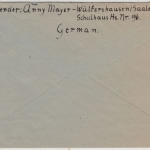 ender: Anny Mayer - Wülfershausen/Saale
Schulhaus Hs. Nr. 96.
German.